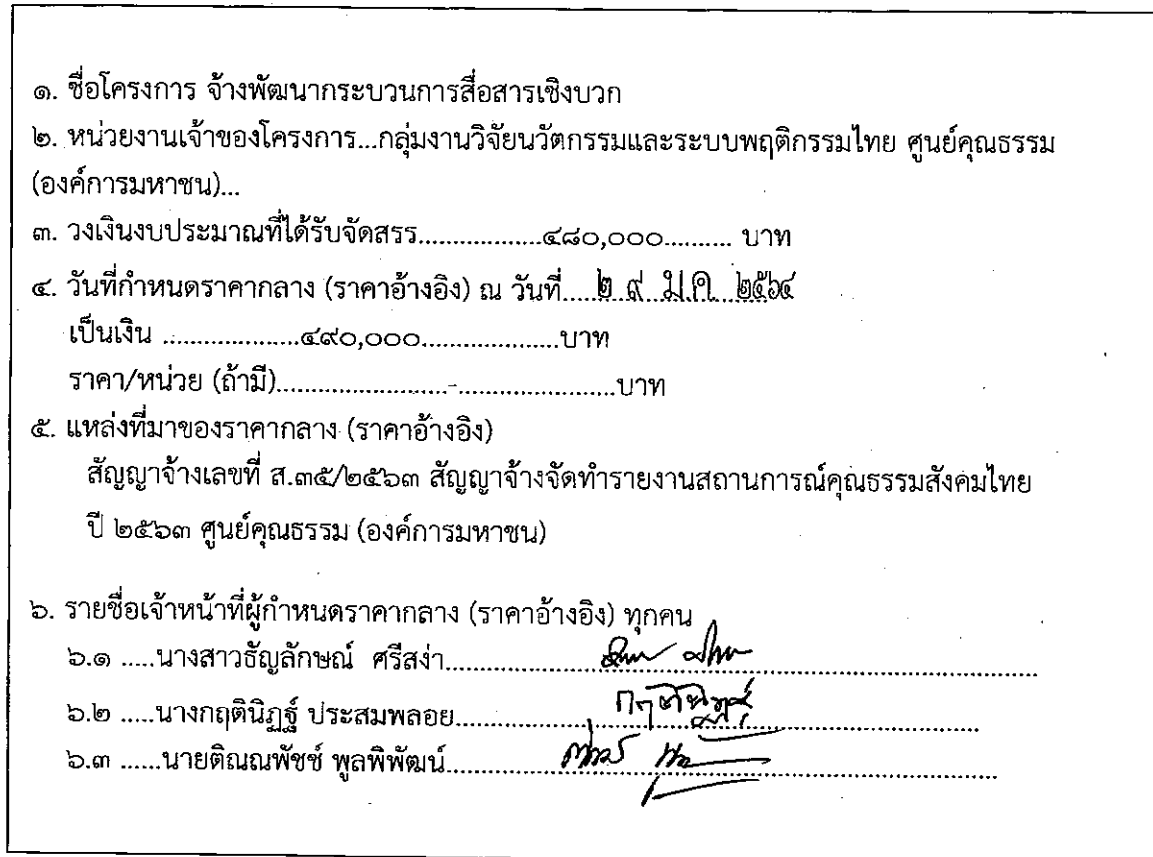 ๑. ชื่อโครงการ จ้างพัฒนากระบวนการสื่อสารเชิงบวก
๒. หน่วยงานเจ้าของโครงการ...กลุ่มงานวิจัยนวัตกรรมและระบบพฤติกรรมไทย ศูนย์คุณธรรม
(องค์การมหาชน)...
๓. วงเงินงบประมาณที่ได้รับจัดสรร..................๔๘๐,๐๐๐.......... บาท
๔. วันที่กำหนดราคากลาง (ราคาอ้างอิง) ณ วันที่.....๒ ๙ ม.ค. ๒๕๖๔
เป็นเงิน ....................๔๙๐,๐๐๐....................บาท
ราคา/หน่วย (ถ้ามี).........................-.......................บาท
๕. แหล่งที่มาของราคากลาง (ราคาอ้างอิง)
สัญญาจ้างเลขที่ ส.๓๕/๒๕๖๓ สัญญาจ้างจัดทำรายงานสถานการณ์คุณธรรมสังคมไทย
ปี ๒๕๖๓ ศูนย์คุณธรรม (องค์การมหาชน)
๖. รายชื่อเจ้าหน้าที่ผู้กำหนดราคากลาง (ราคาอ้างอิง) ทุกคน
๖.๑ .....นางสาวธัญลักษณ์ ศรีสง่า
๖.๒ .....นางกฤตินิฏฐ์ ประสมพลอย
๖.๓ ......นายติณณพัชช์ พูลพิพัฒน์